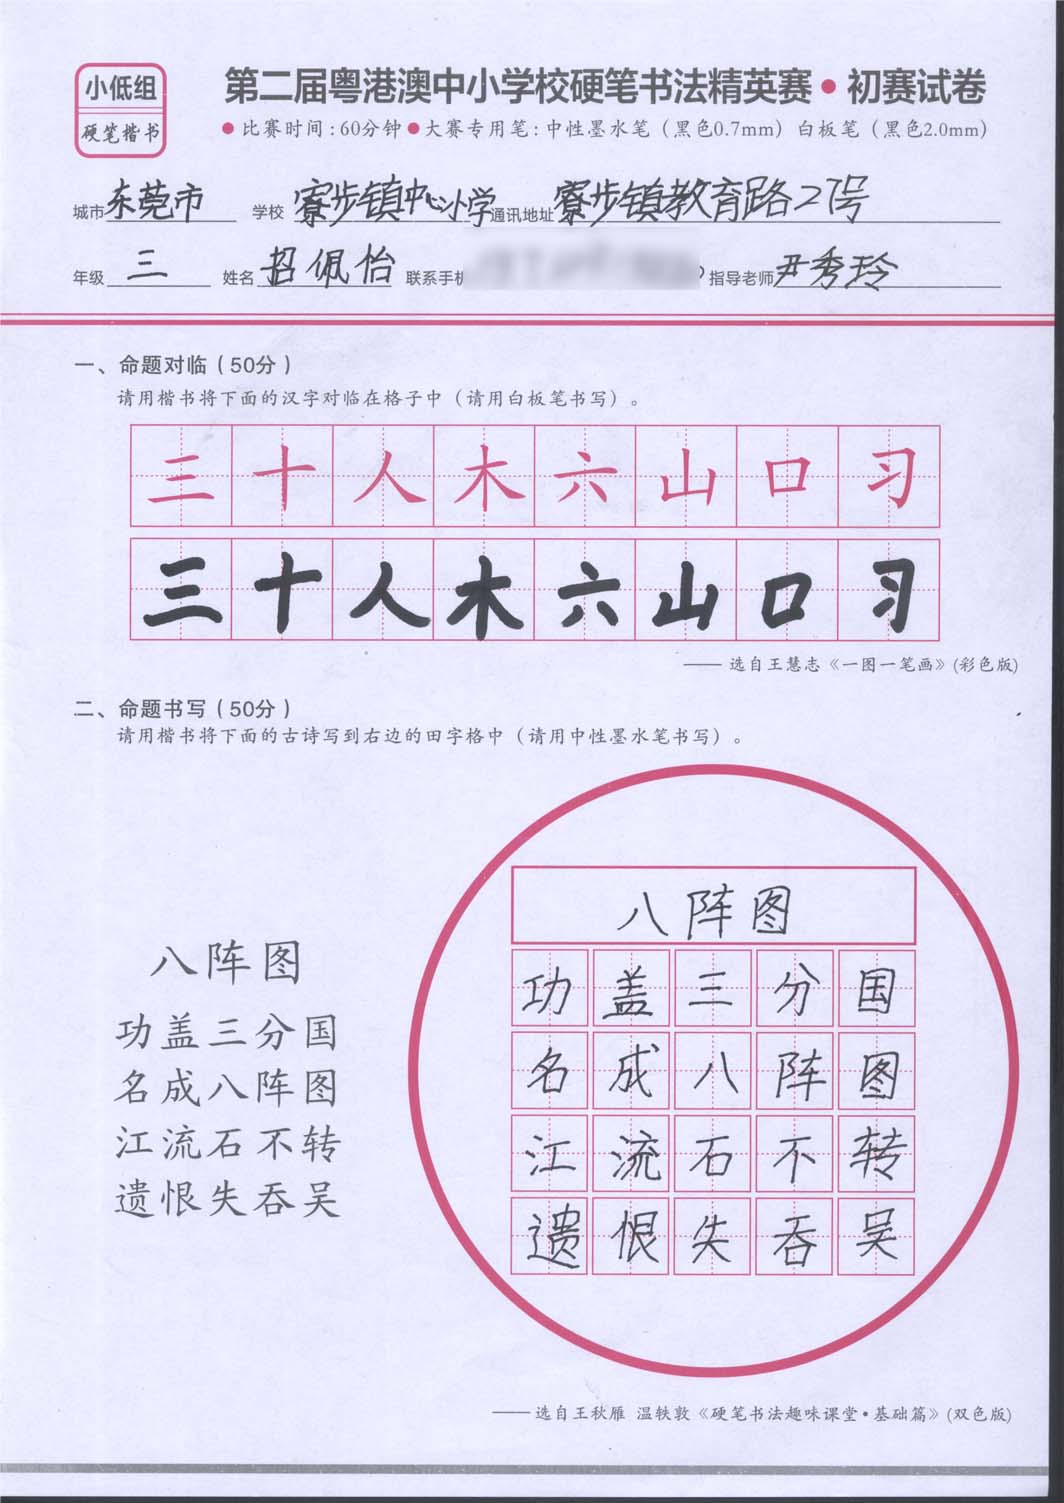 小低组
硬笔楷书
第二届粤港澳中小学校硬笔书法精英赛·初赛试卷
●比赛时间:60分钟●大赛专用笔:中性墨水笔(黑色0.7mm) 白板笔(黑色2.0mm)
城市 东莞市 学校 寮步镇中心小学 通讯地址 寮步镇教育路27号
年级 三 姓名 招佩怡 联系手机 指导老师 尹秀玲
一、命题对临(50分)
请用楷书将下面的汉字对临在格子中(请用白板笔书写)。
三十人木六山口习
三十人木六山口习
—— 选自王慧志《一图一笔画》(彩色版)
二、命题书写(50分)
请用楷书将下面的古诗写到右边的田字格中(请用中性墨水笔书写)。
八阵图
功盖三分国
名成八阵图
江流石不转
遗恨失吞吴
八阵图
功盖三分国
名成八阵图
江流石不转
遗恨失吞吴
—— 选自王秋雁 温轶敦《硬笔书法趣味课堂·基础篇》(双色版)